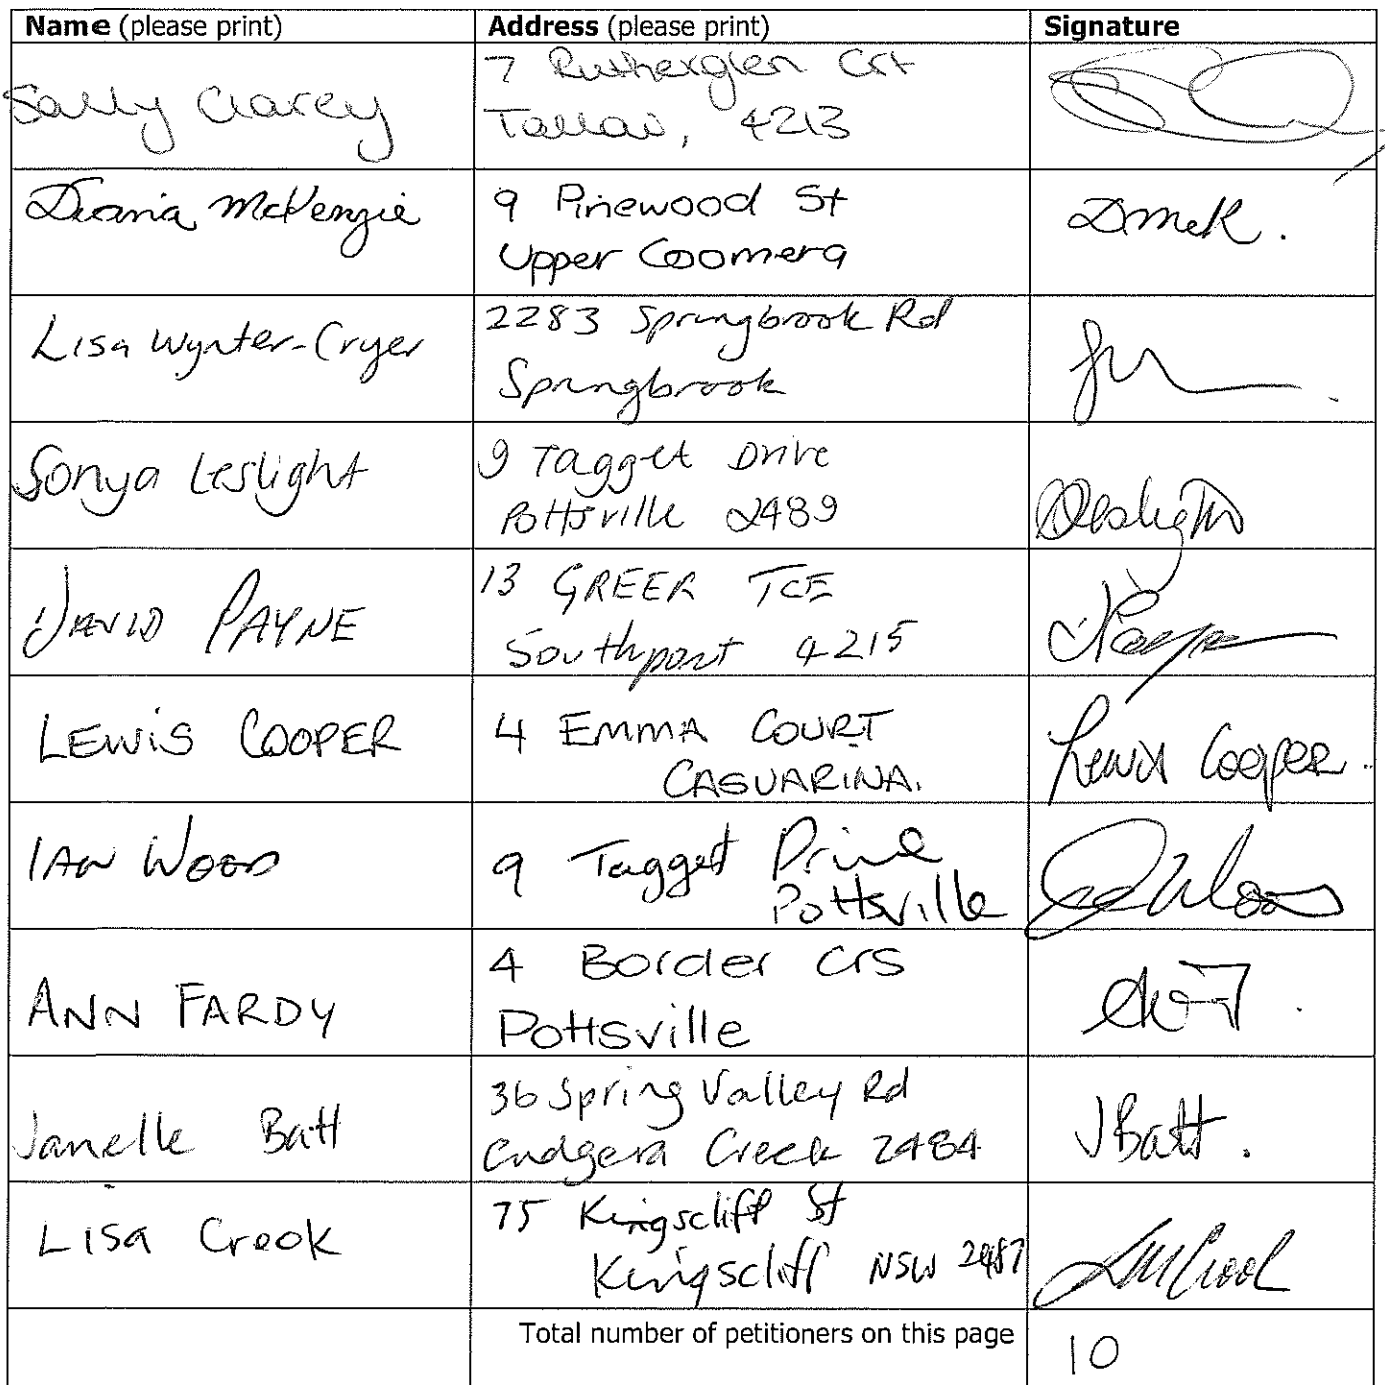 Name (please print) Address (please print) Signature
Sally Clarey 7 Rutherglen Crt
Tallai, 4213
Diana McKenzie 9 Pinewood St DMcK.
Upper Coomera
Lisa Wynter-Cryer 2283 Springbrook Rd
Springbrook
Sonya Leslight 9 Tagget Drive
Pottsville 2489
DAVID PAYNE 13 GREER TCE
Southport 4215
LEWIS COOPER 4 EMMA COURT Lewis Cooper.
CASUARINA.
IAN WOOD 9 Tagget Drive
Pottsville
ANN FARDY 4 Border Crs
Pottsville
Janelle Batt 36 Spring Valley Rd JBatt.
Cudgera Creek 2484
Lisa Crook 75 Kingscliff St
Kingscliff NSW 2487
Total number of petitioners on this page 10